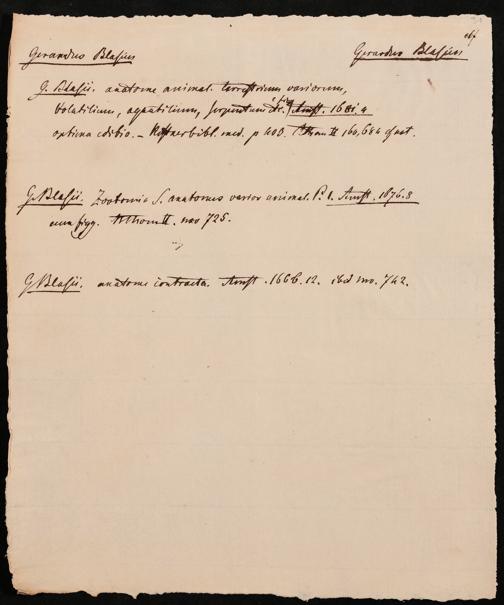 Gerardus Blasius Gerardus Blasius
G. Blasii. anatome animal. terrestrium variorum,
volatilium, aquatilium, serpentum etc. fig. Amst. 1681. 4
optima editio. – bibl. med. p 400. II 160,684 quat.
G. Blasii. Zootomia S. anatomes varior animal. P. 1. Amst. 1676. 8
cum figg. II. no 725.
G Blasii. anatome contracta. Amst. 1666. 12. ibid no. 742.